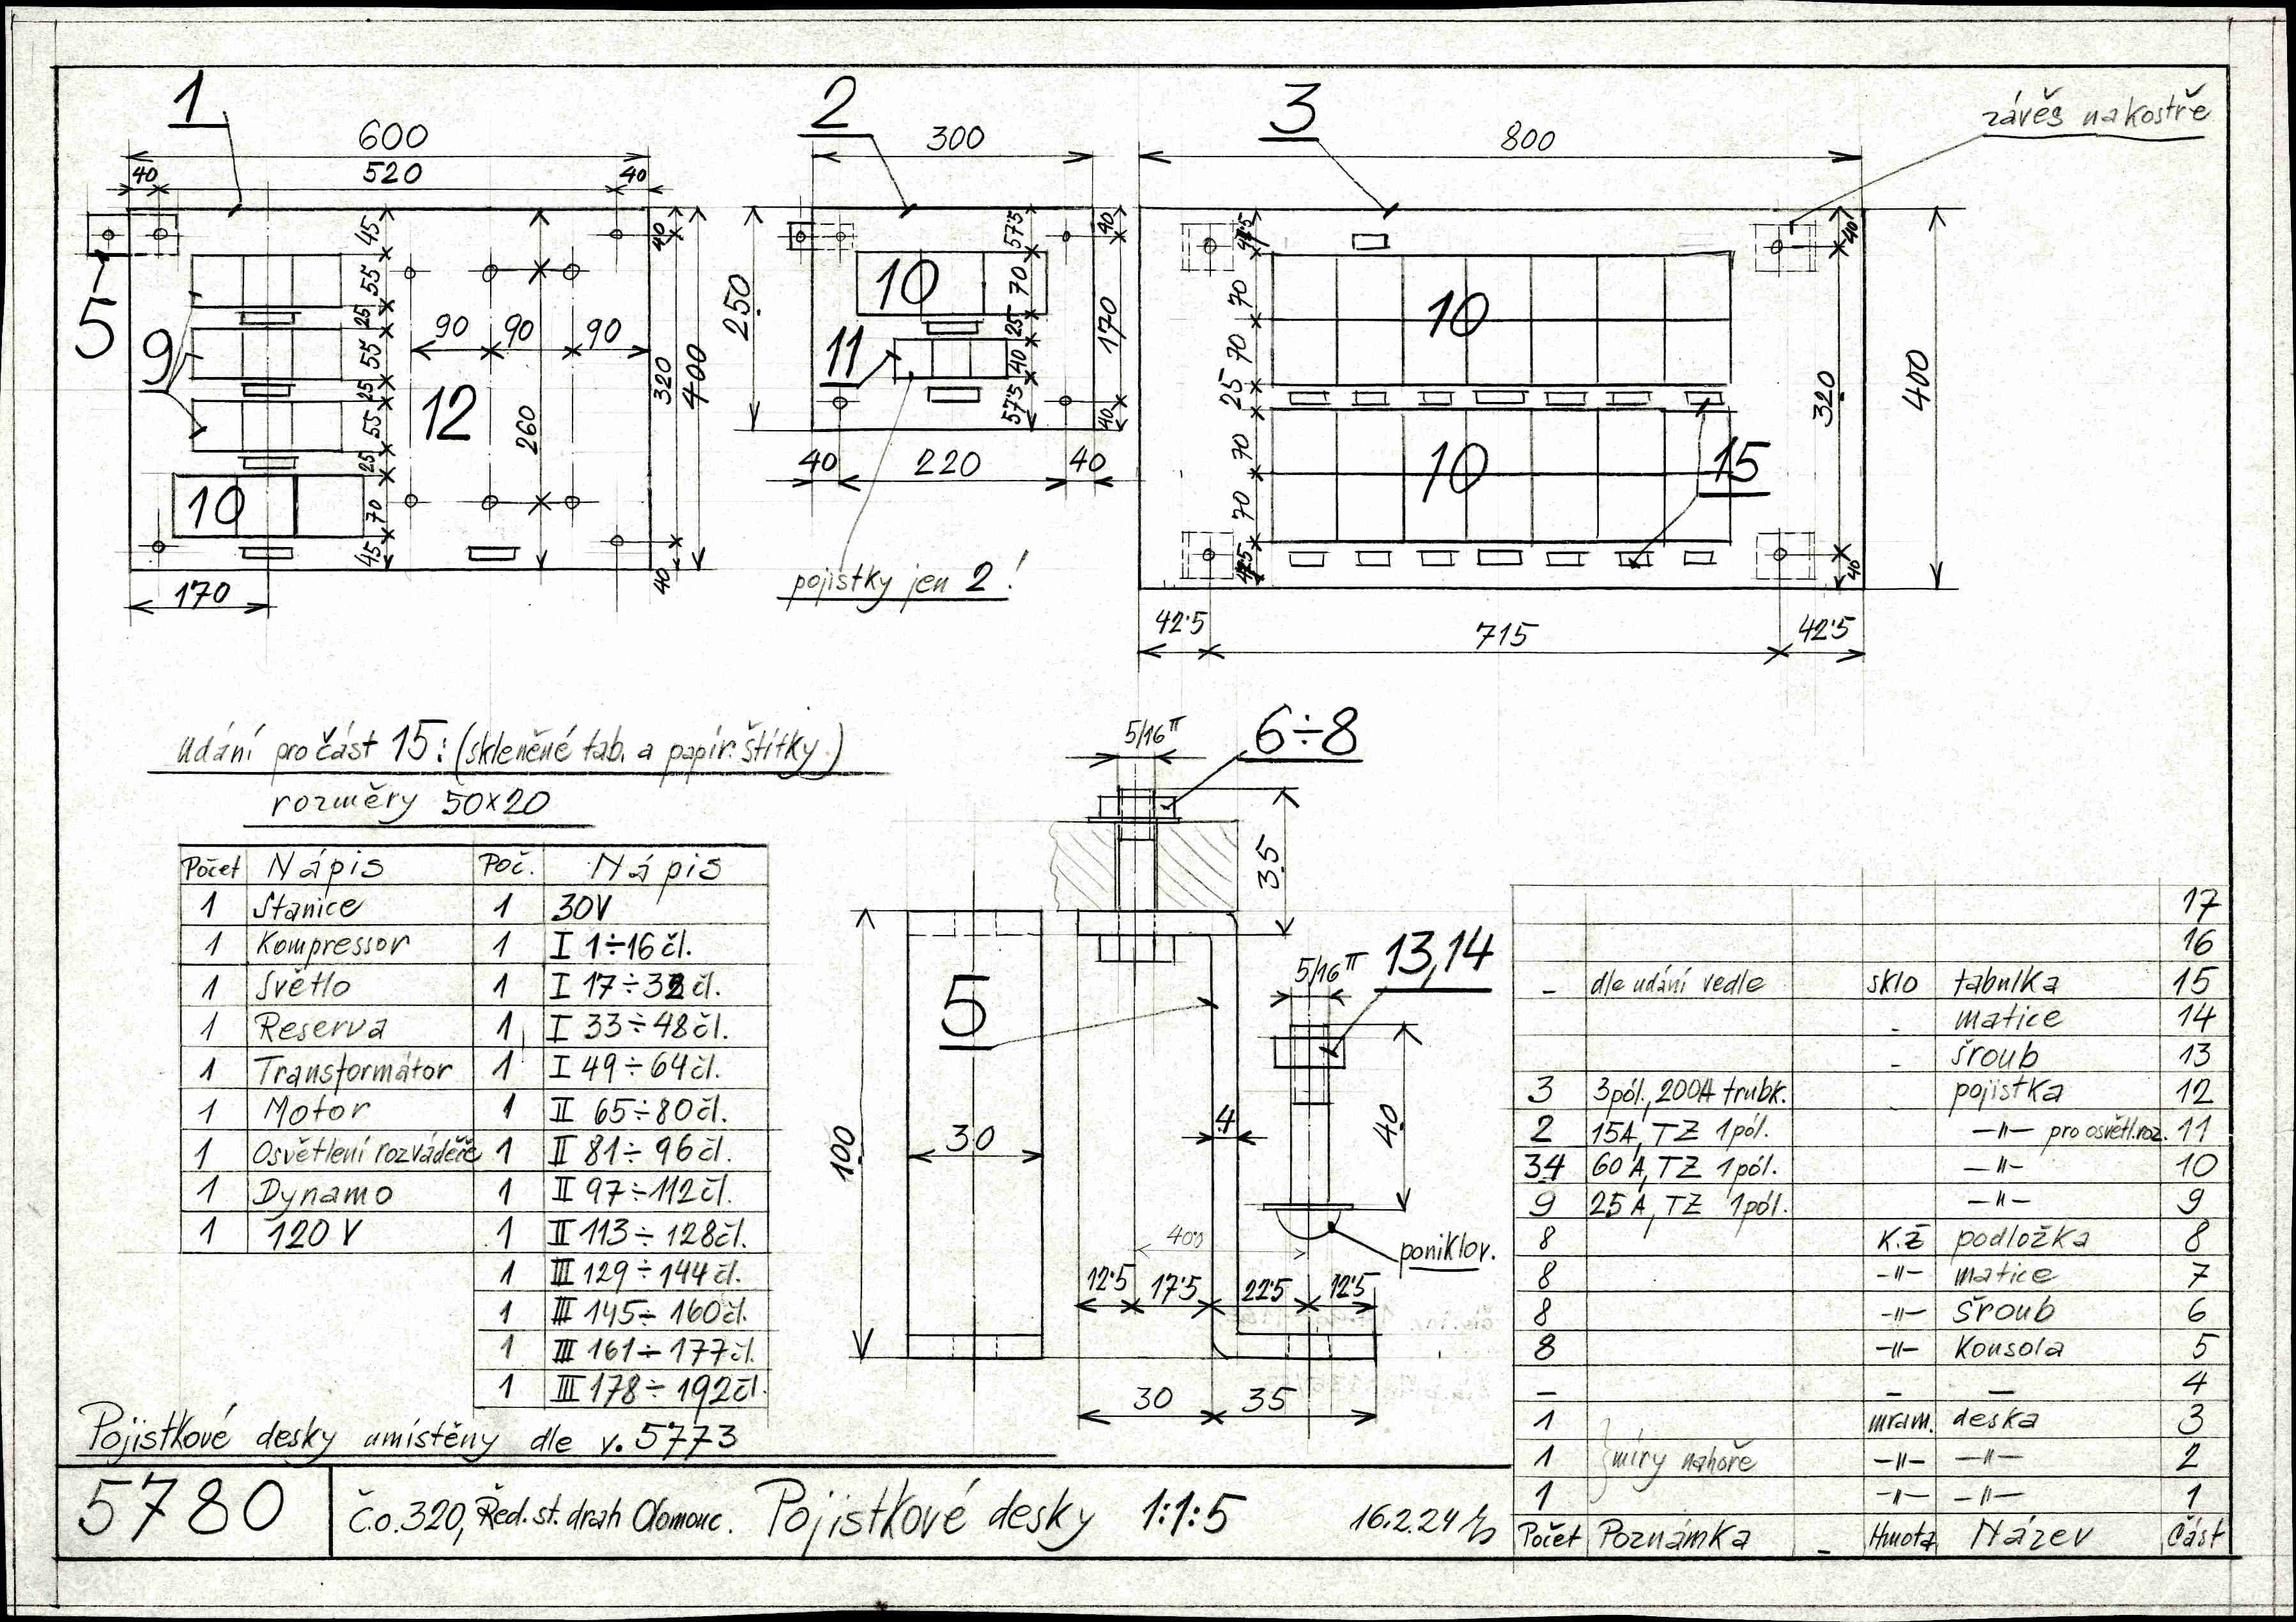 1
600
40 520 40
5
9
10
12
45
55
25
55
25
55
25
70
45
90 90 90
260
40
320
400
40
170
2
300
250
10
11
57'5
70
25
40
57'5
40
170
40
40 220 40
pojistky jen 2!
3
800
závěs na kostře
10
10
15
42'5
70
70
25
70
70
42'5
40
320
40
400
42'5 715 42'5
udání pro část 15: (skleněné tab. a papír. štítky)
rozměry 50x20
Počet Nápis Poč. Nápis
1 Stanice 1 30V
1 Kompressor 1 I 1÷16 čl.
1 Světlo 1 I 17÷32 čl.
1 Reserva 1 I 33÷48 čl.
1 Transformátor 1 I 49÷64 čl.
1 Motor 1 II 65÷80 čl.
1 Osvětlení rozváděče 1 II 81÷96 čl.
1 Dynamo 1 II 97÷112 čl.
1 120 V 1 II 113÷128 čl.
1 III 129÷144 čl.
1 III 145÷160 čl.
1 III 161÷177 čl.
1 III 178÷192 čl.
5/16"
6÷8
35
5
100
30
4
5/16"
13,14
40
400
poniklov.
12'5 17'5 22'5 12'5
30 35
17
16
- dle udání vedle sklo tabulka 15
- matice 14
- šroub 13
3 3pól., 200A trubk. pojistka 12
2 15A, TZ 1pól. -"- pro osvětl. roz. 11
34 60 A, TZ 1pól. -"- 10
9 25 A, TZ 1pól. -"- 9
8 K.Ž podložka 8
8 -"- matice 7
8 -"- šroub 6
8 -"- Konsola 5
- - - 4
1 mram. deska 3
1 míry nahoře -"- -"- 2
1 -"- -"- 1
Počet Poznámka - Hmota Název Část
Pojistkové desky umístěny dle v. 5773
5780
Č.o. 320, Řed. st. drah Olomouc. Pojistkové desky 1:1:5 16.2.24